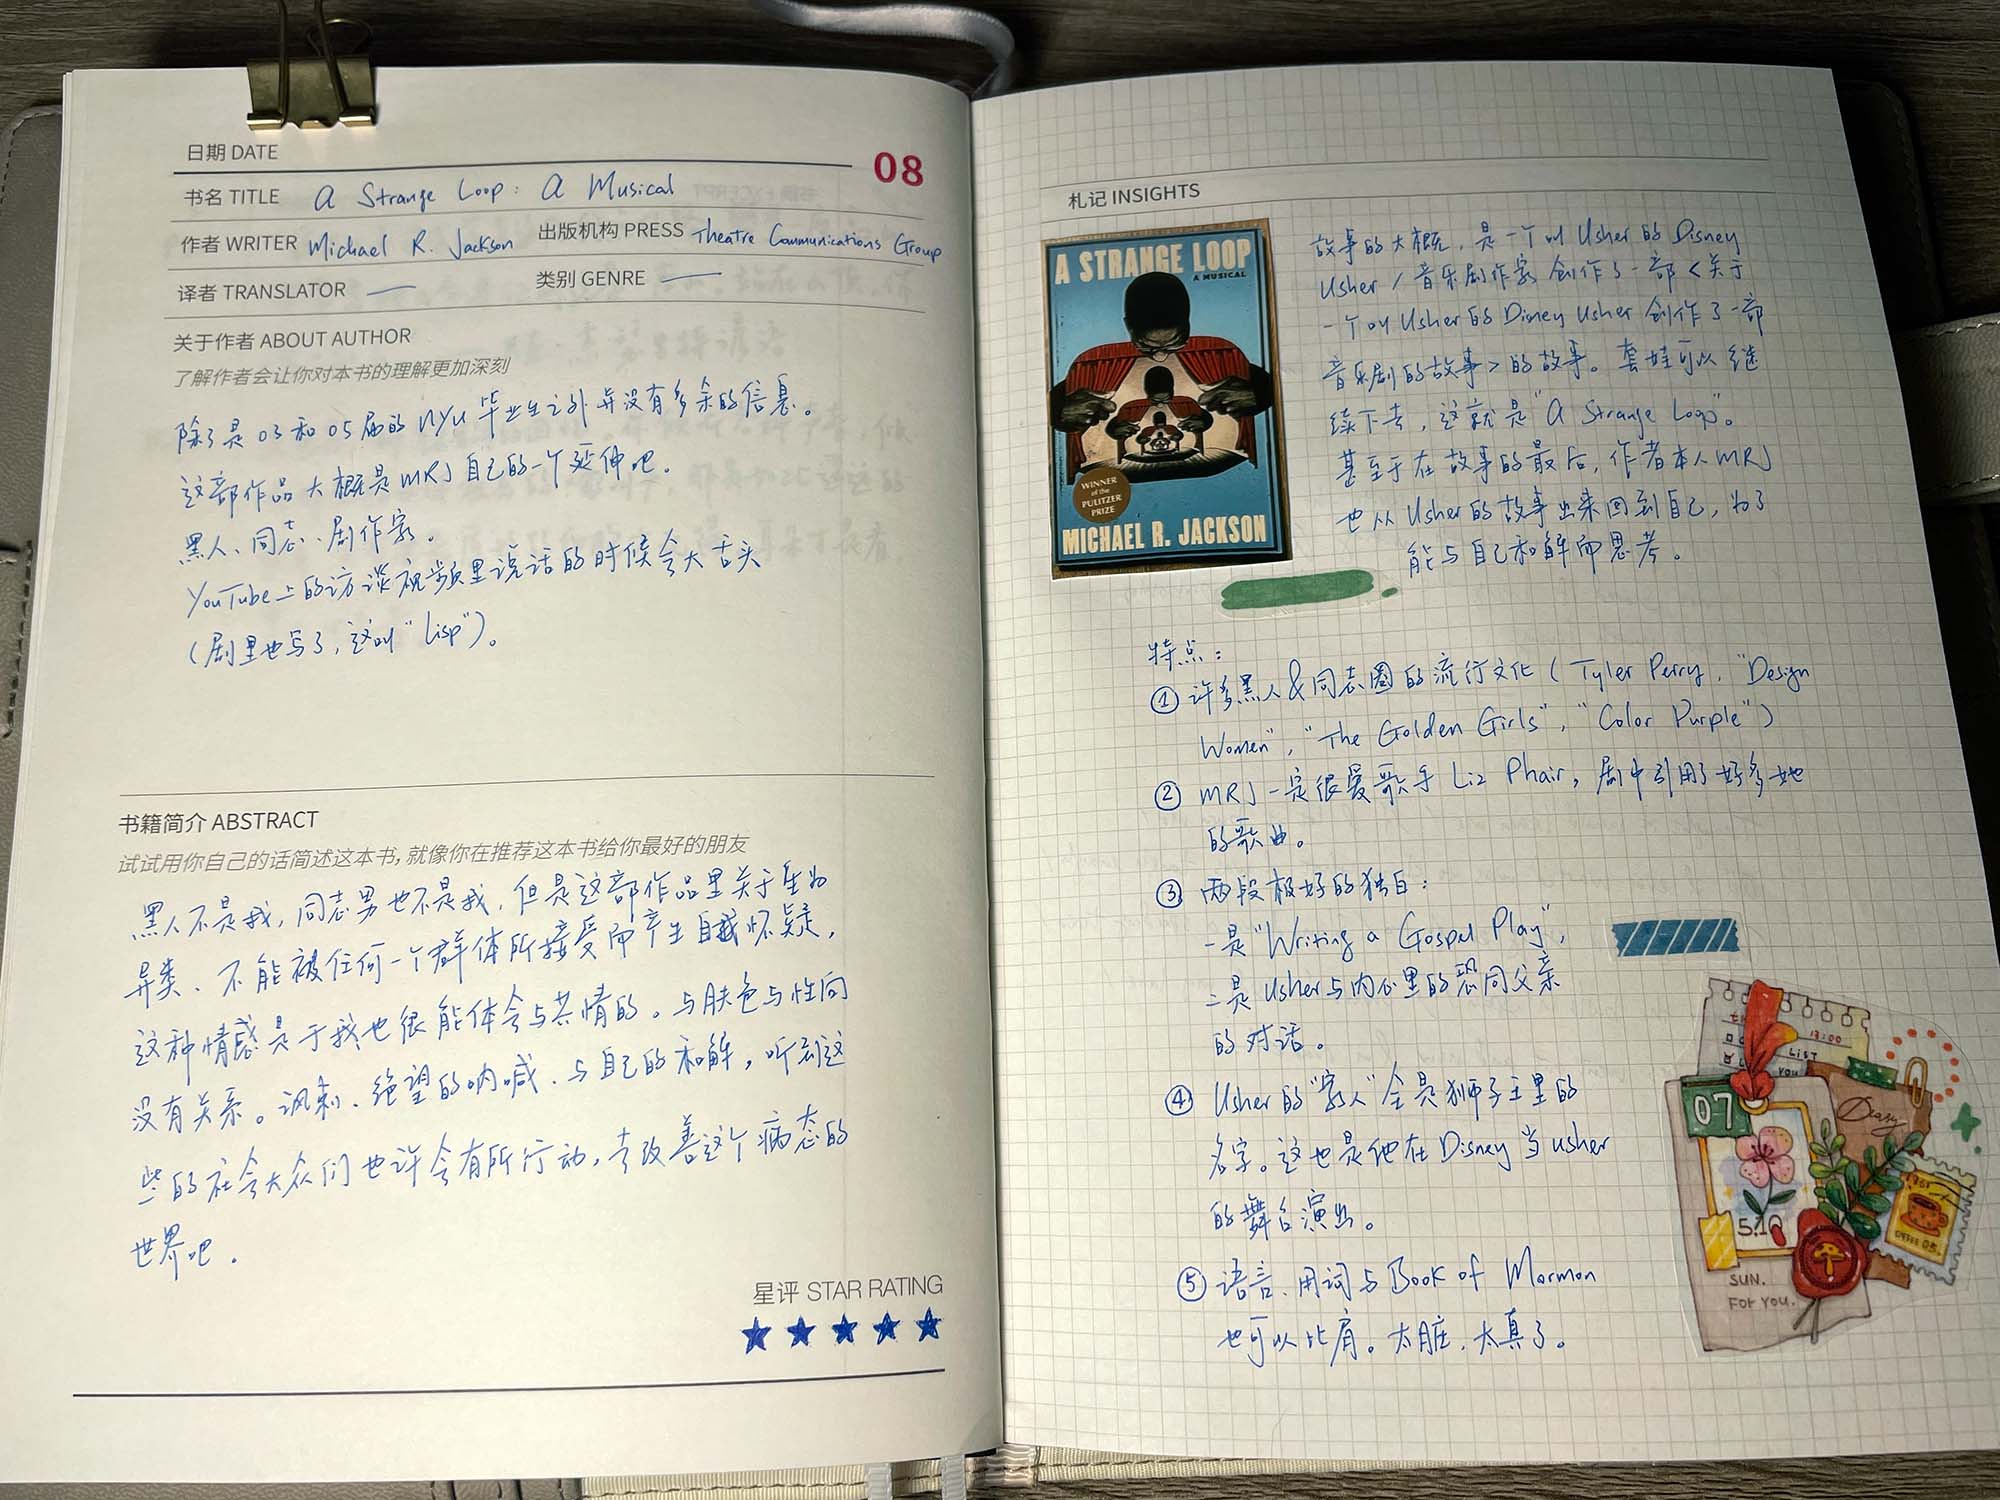 日期 DATE
08
书名 TITLE A Strange Loop: A Musical
作者 WRITER Michael R. Jackson 出版机构 PRESS Theatre Communications Group
译者 TRANSLATOR — 类别 GENRE —
关于作者 ABOUT AUTHOR
了解作者会让你对本书的理解更加深刻
除了是03和05届的NYU毕业生之外并没有多余的信息。
这部作品大概是MRJ自己的一个延伸吧。
黑人、同志、剧作家。
YouTube上的访谈视频里说话的时候会大舌头
(剧里也写了,这叫"lisp")。
书籍简介 ABSTRACT
试试用你自己的话简述这本书,就像你在推荐这本书给你最好的朋友
黑人不是我,同志男也不是我,但是这部作品里关于生为
异类、不能被任何一个群体所接受而产生自我怀疑,
这种情感是于我也很能体会与共情的。与肤色与性向
没有关系。讽刺、绝望的呐喊、与自己的和解,听到这
些的社会大众们也许会有所行动,去改善这个病态的
世界吧。
星评 STAR RATING
★ ★ ★ ★ ★
札记 INSIGHTS
A STRANGE LOOP
A MUSICAL
WINNER
of the
PULITZER
PRIZE
MICHAEL R. JACKSON
故事的大概,是一个叫Usher的Disney
Usher/音乐剧作家创作了一部<关于
一个叫Usher的Disney Usher创作了一部
音乐剧的故事>的故事。套娃可以继
续下去,这就是"A Strange Loop"。
甚至于在故事的最后,作者本人MRJ
也从Usher的故事出来回到自己,为了
能与自己和解而思考。
特点:
① 许多黑人&同志圈的流行文化(Tyler Perry, "Design
Women", "The Golden Girls", "Color Purple")
② MRJ一定很爱歌手Liz Phair,剧中引用了好多她
的歌曲。
③ 两段极好的独白:
一是"Writing a Gospel Play",
二是Usher与内心里的恐同父亲
的对话。
④ Usher的"家人"全是狮子王里的
名字。这也是他在Disney当usher
的舞台演出。
⑤ 语言、用词与Book of Mormon
也可以比肩。太脏,太真了。
13:00
LIST
YOU
07
Diary
5.10
1965
COFFEE 05.
SUN.
FOR YOU.